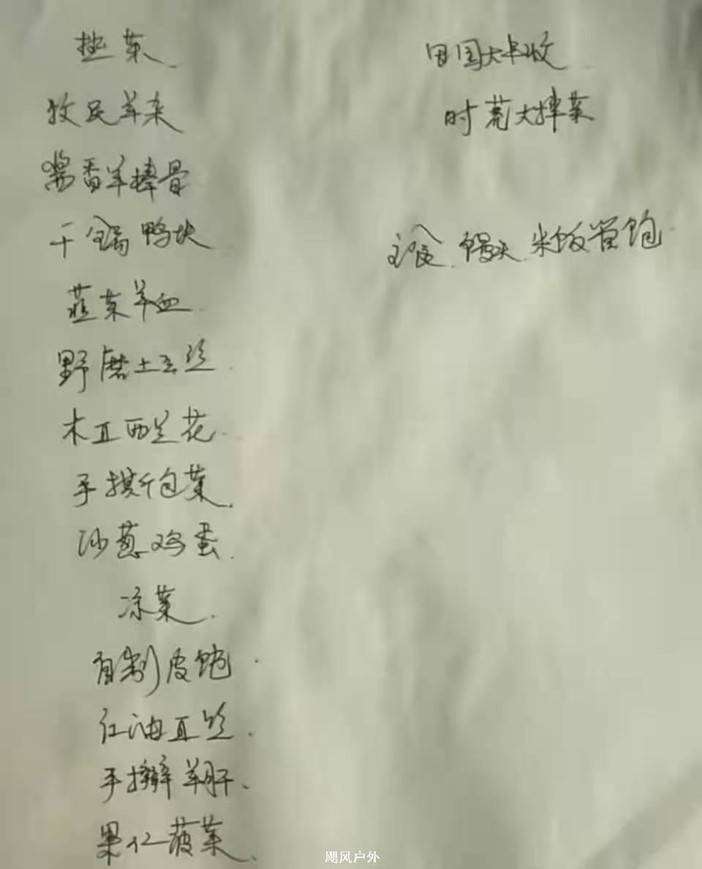 热菜
牧民羊杂
酱香羊棒骨
干锅鸭块
韭菜羊血
野磨土豆丝
木耳西兰花
手撕包菜
沙葱鸡蛋
凉菜
自制皮
红油耳丝
手擀羊肝
果仁菠菜
田园大丰收
时荒大拌菜
主食 馒头 米饭管饱
飓风户外